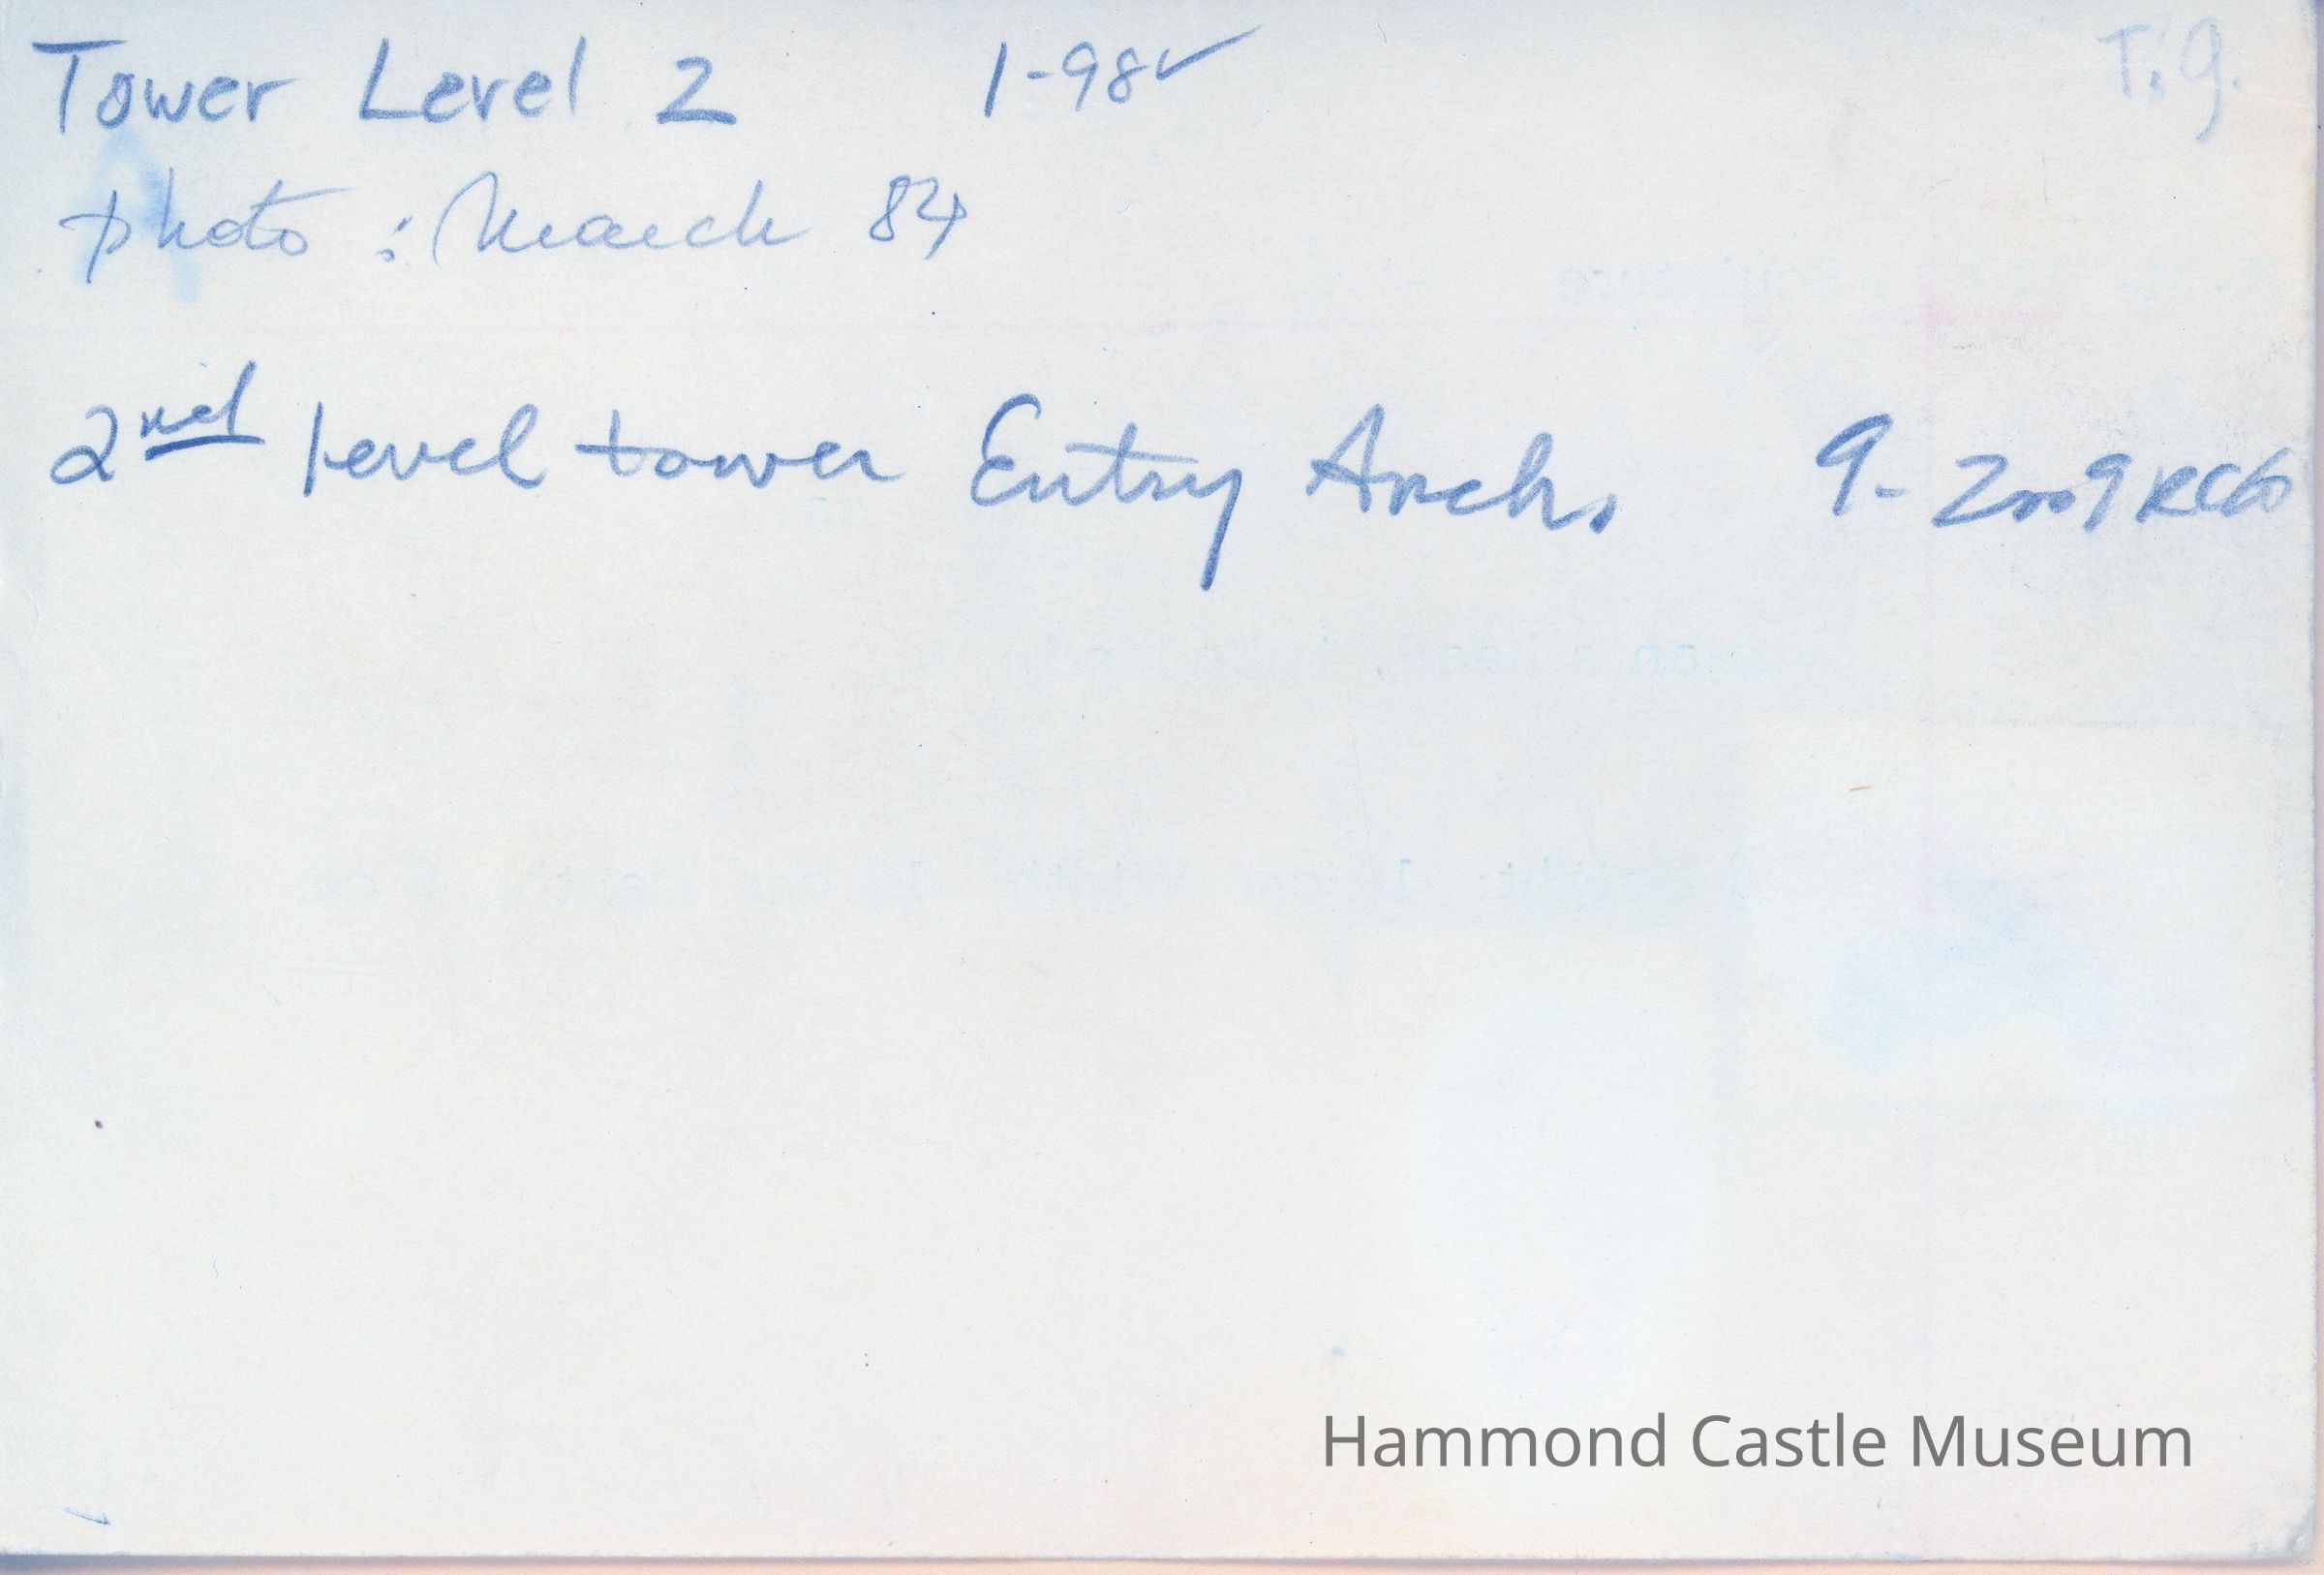 Tower Level 2 1-98✓ T.9.
photo: March 84
2nd level tower Entry Arch. 9-2009
Hammond Castle Museum